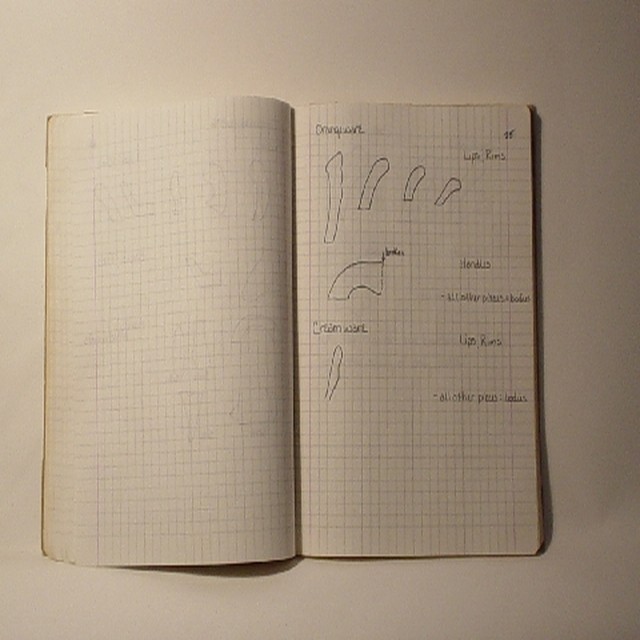 Orangeware
Lips, Rims
Handles
- all other pieces = bodies
Creamware
Lips, Rims
- all other pieces = bodies